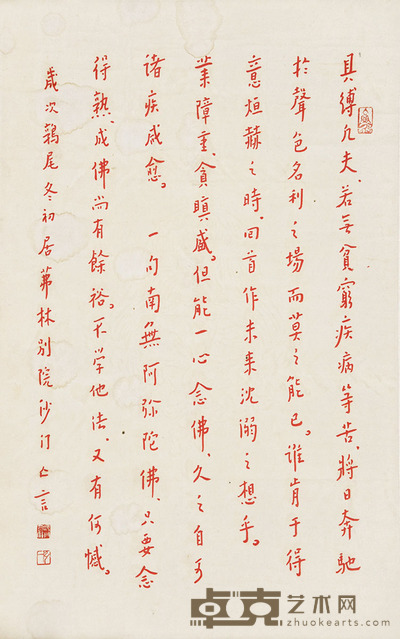 具缚凡夫、若无貧窮疾病等苦、将日奔馳
於聲色名利之場而莫之能已。誰肯于得
意烜赫之時、回首作未来沈溺之想乎。
業障重、貪瞋盛。但能一心念佛、久之自可
諸疾咸愈。一句南無阿弥陀佛、只要念
得熟、成佛尚有餘裕。不学他法、又有何憾。
歲次鶉尾冬初居茀林別院沙门亡言
卓克艺术网
www.zhuokearts.com